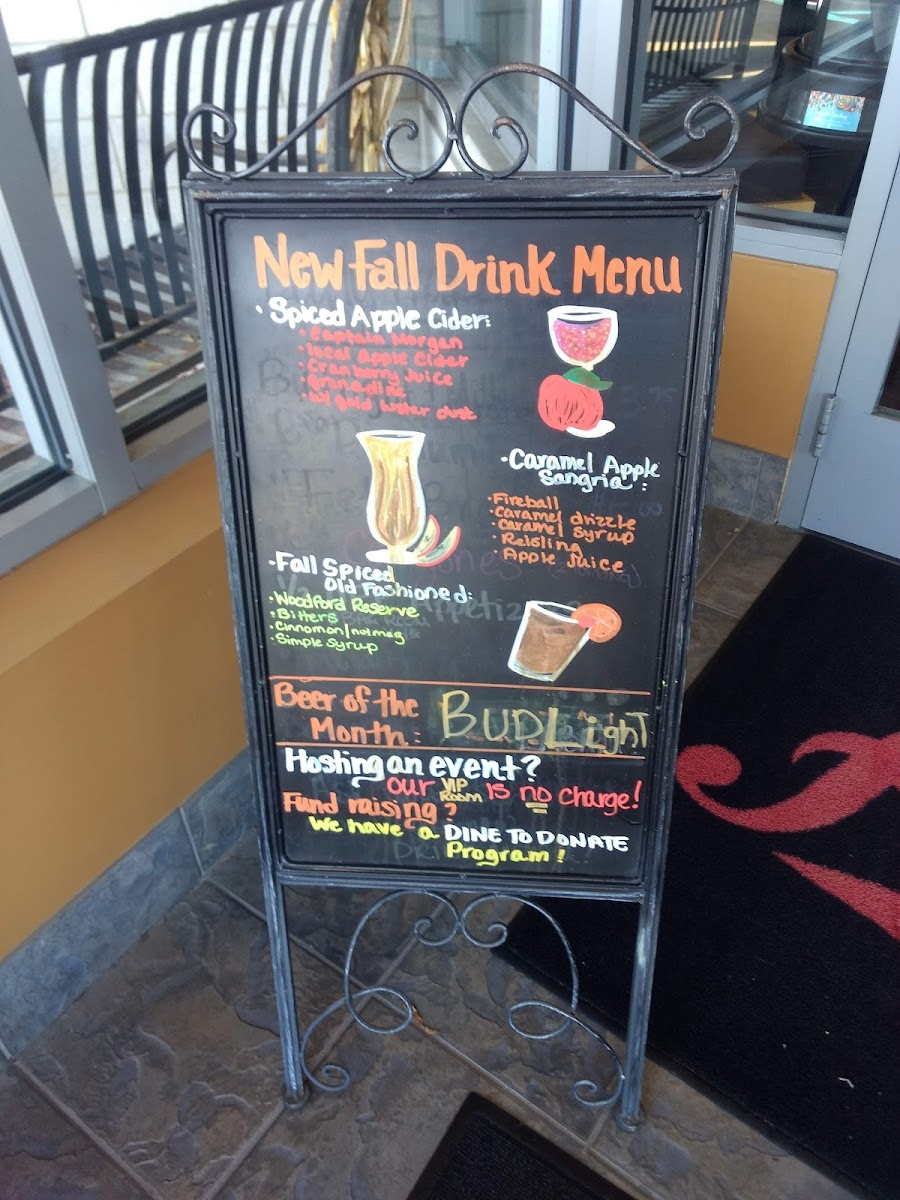 New Fall Drink Menu
· Spiced Apple Cider:
· Captain Morgan
· local Apple Cider
· Cranberry Juice
· Grenadine
· w/ gold luster dust
· Caramel Apple
Sangria:
· Fireball
· Caramel drizzle
· Caramel syrup
· Reisling
· Apple Juice
· Fall Spiced
Old Fashioned:
· Woodford Reserve
· Bitters
· Cinnomon/nutmeg
· Simple syrup
Beer of the
Month:
BUDLighT
Hosting an event?
our VIP Room is no charge!
Fund raising?
We have a DINE TO DONATE
Program!